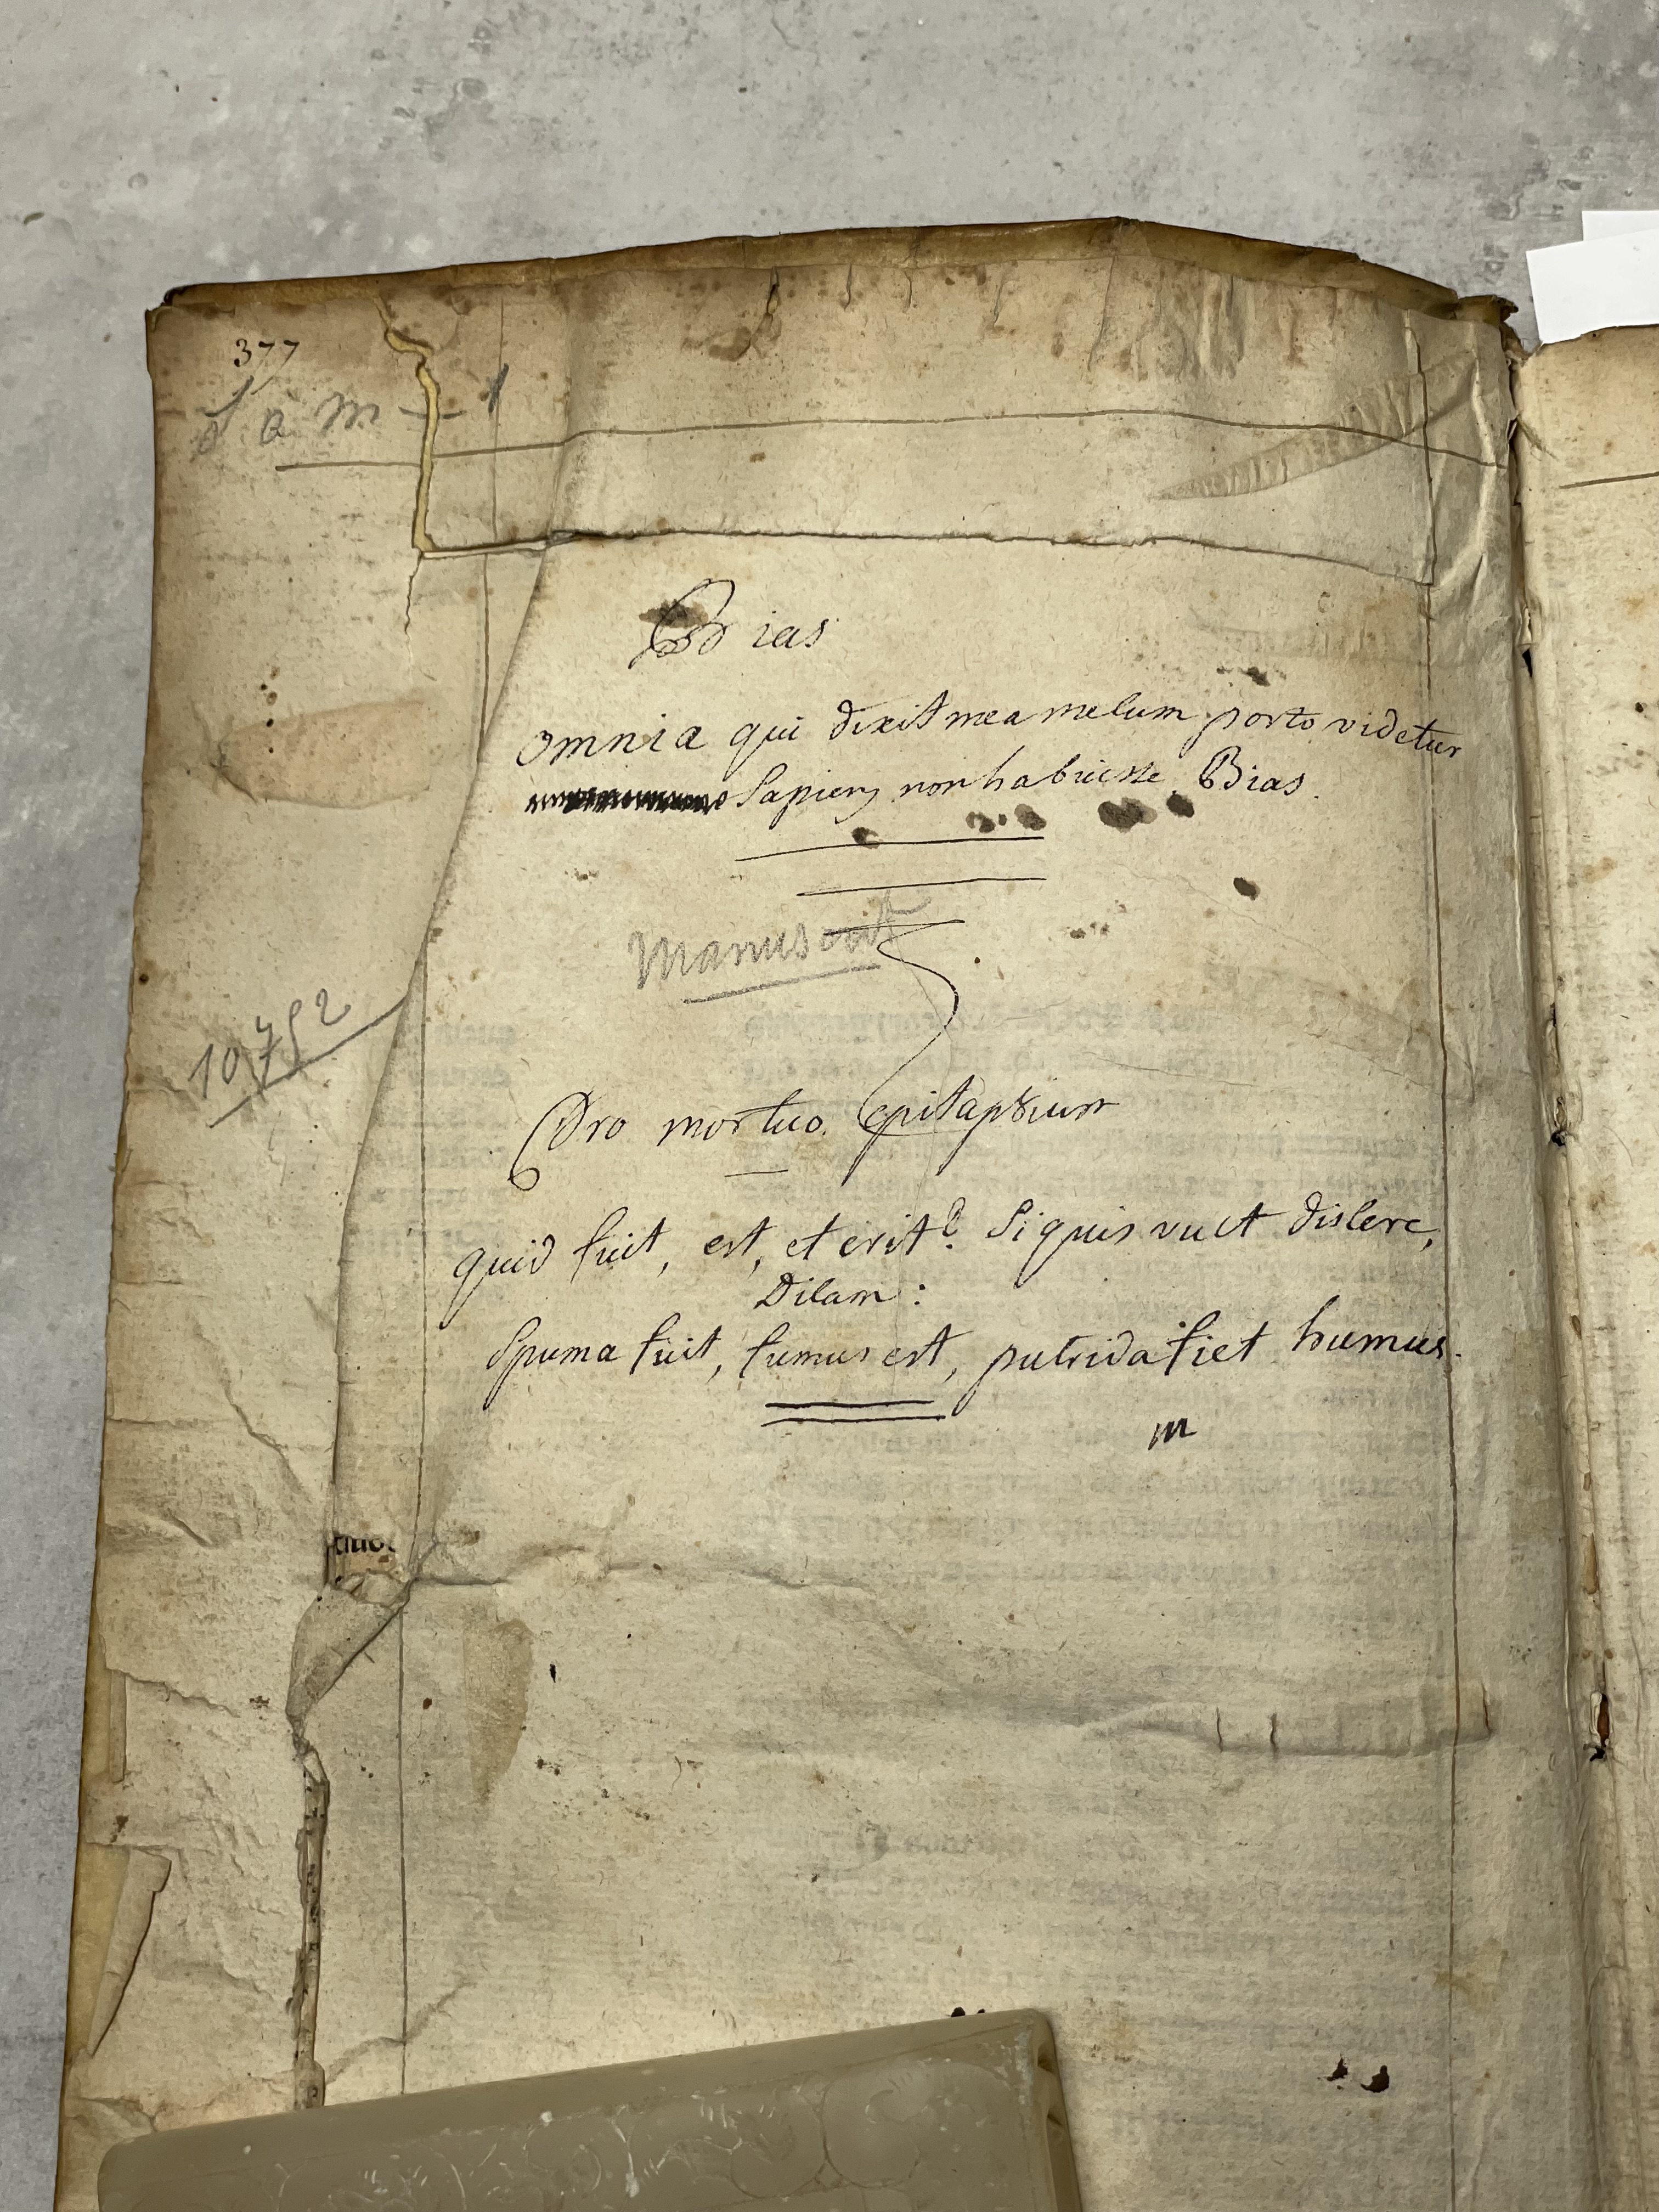 377
Bias
omnia qui dixit mea melum porto videtur
Sapiens non habuisse Bias.
Manuscrit
10752
Pro mortuo epitaphium
quid fuit, est, et erit? Si quis vult dislere,
Dilam:
Spuma fuit, fumus est, putrida fiet humus.
m